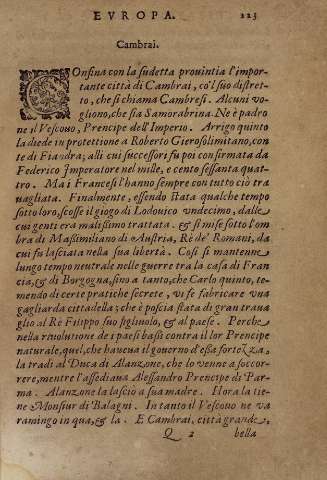 EVROPA. 223
Cambrai.
COnfina con la sudetta prouintia l'impor-
tante città di Cambrai, co'l suo distret-
to, che si chiama Cambresì. Alcuni vo-
gliono, che sia Samarabrina. Ne è padro
ne il Vescouo, Prencipe dell'Imperio. Arrigo quinto
la diede in protettione a Roberto Gierosolimitano, con
te di Fiandra; alli cui successori fu poi confirmata da
Federico Imperatore nel mille, e cento sessanta quat-
tro. Mai Francesi l'hanno sempre con tutto ciò tra
uagliata. Finalmente, essendo stata qualche tempo
sotto loro, scosse il giogo di Lodouico vndecimo, dalle
cui genti era malissimo trattata, & si mise sotto l'om
bra di Massimiliano di Austria, Rè de' Romani, da
cui fu lasciata nella sua libertà. Così si mantenne
lungo tempo neutrale nelle guerre tra la casa di Fran
cia, & di Borgogna, sino a tanto, che Carlo quinto, te-
mendo di certe pratiche secrete, vi fe fabricare vna
gagliarda cittadella; che è poscia stata di gran traua
glio al Rè Filippo suo figliuolo, & al paese. Perche
nella riuolutione de i paesi bassi contra il lor Prencipe
naturale, quel, che haueua il gouerno d'essa fortezza,
la tradì al Duca di Alanzone, che lo venne a soccor-
rere, mentre l'assediaua Alessandro Prencipe di Par-
ma. Alanzone la lasciò a sua madre. Hora la tie-
ne Monsiur di Balagnì. In tanto il Vescouo ne va
ramingo in qua, & la. E Cambrai, città grande,
Q 2 bella